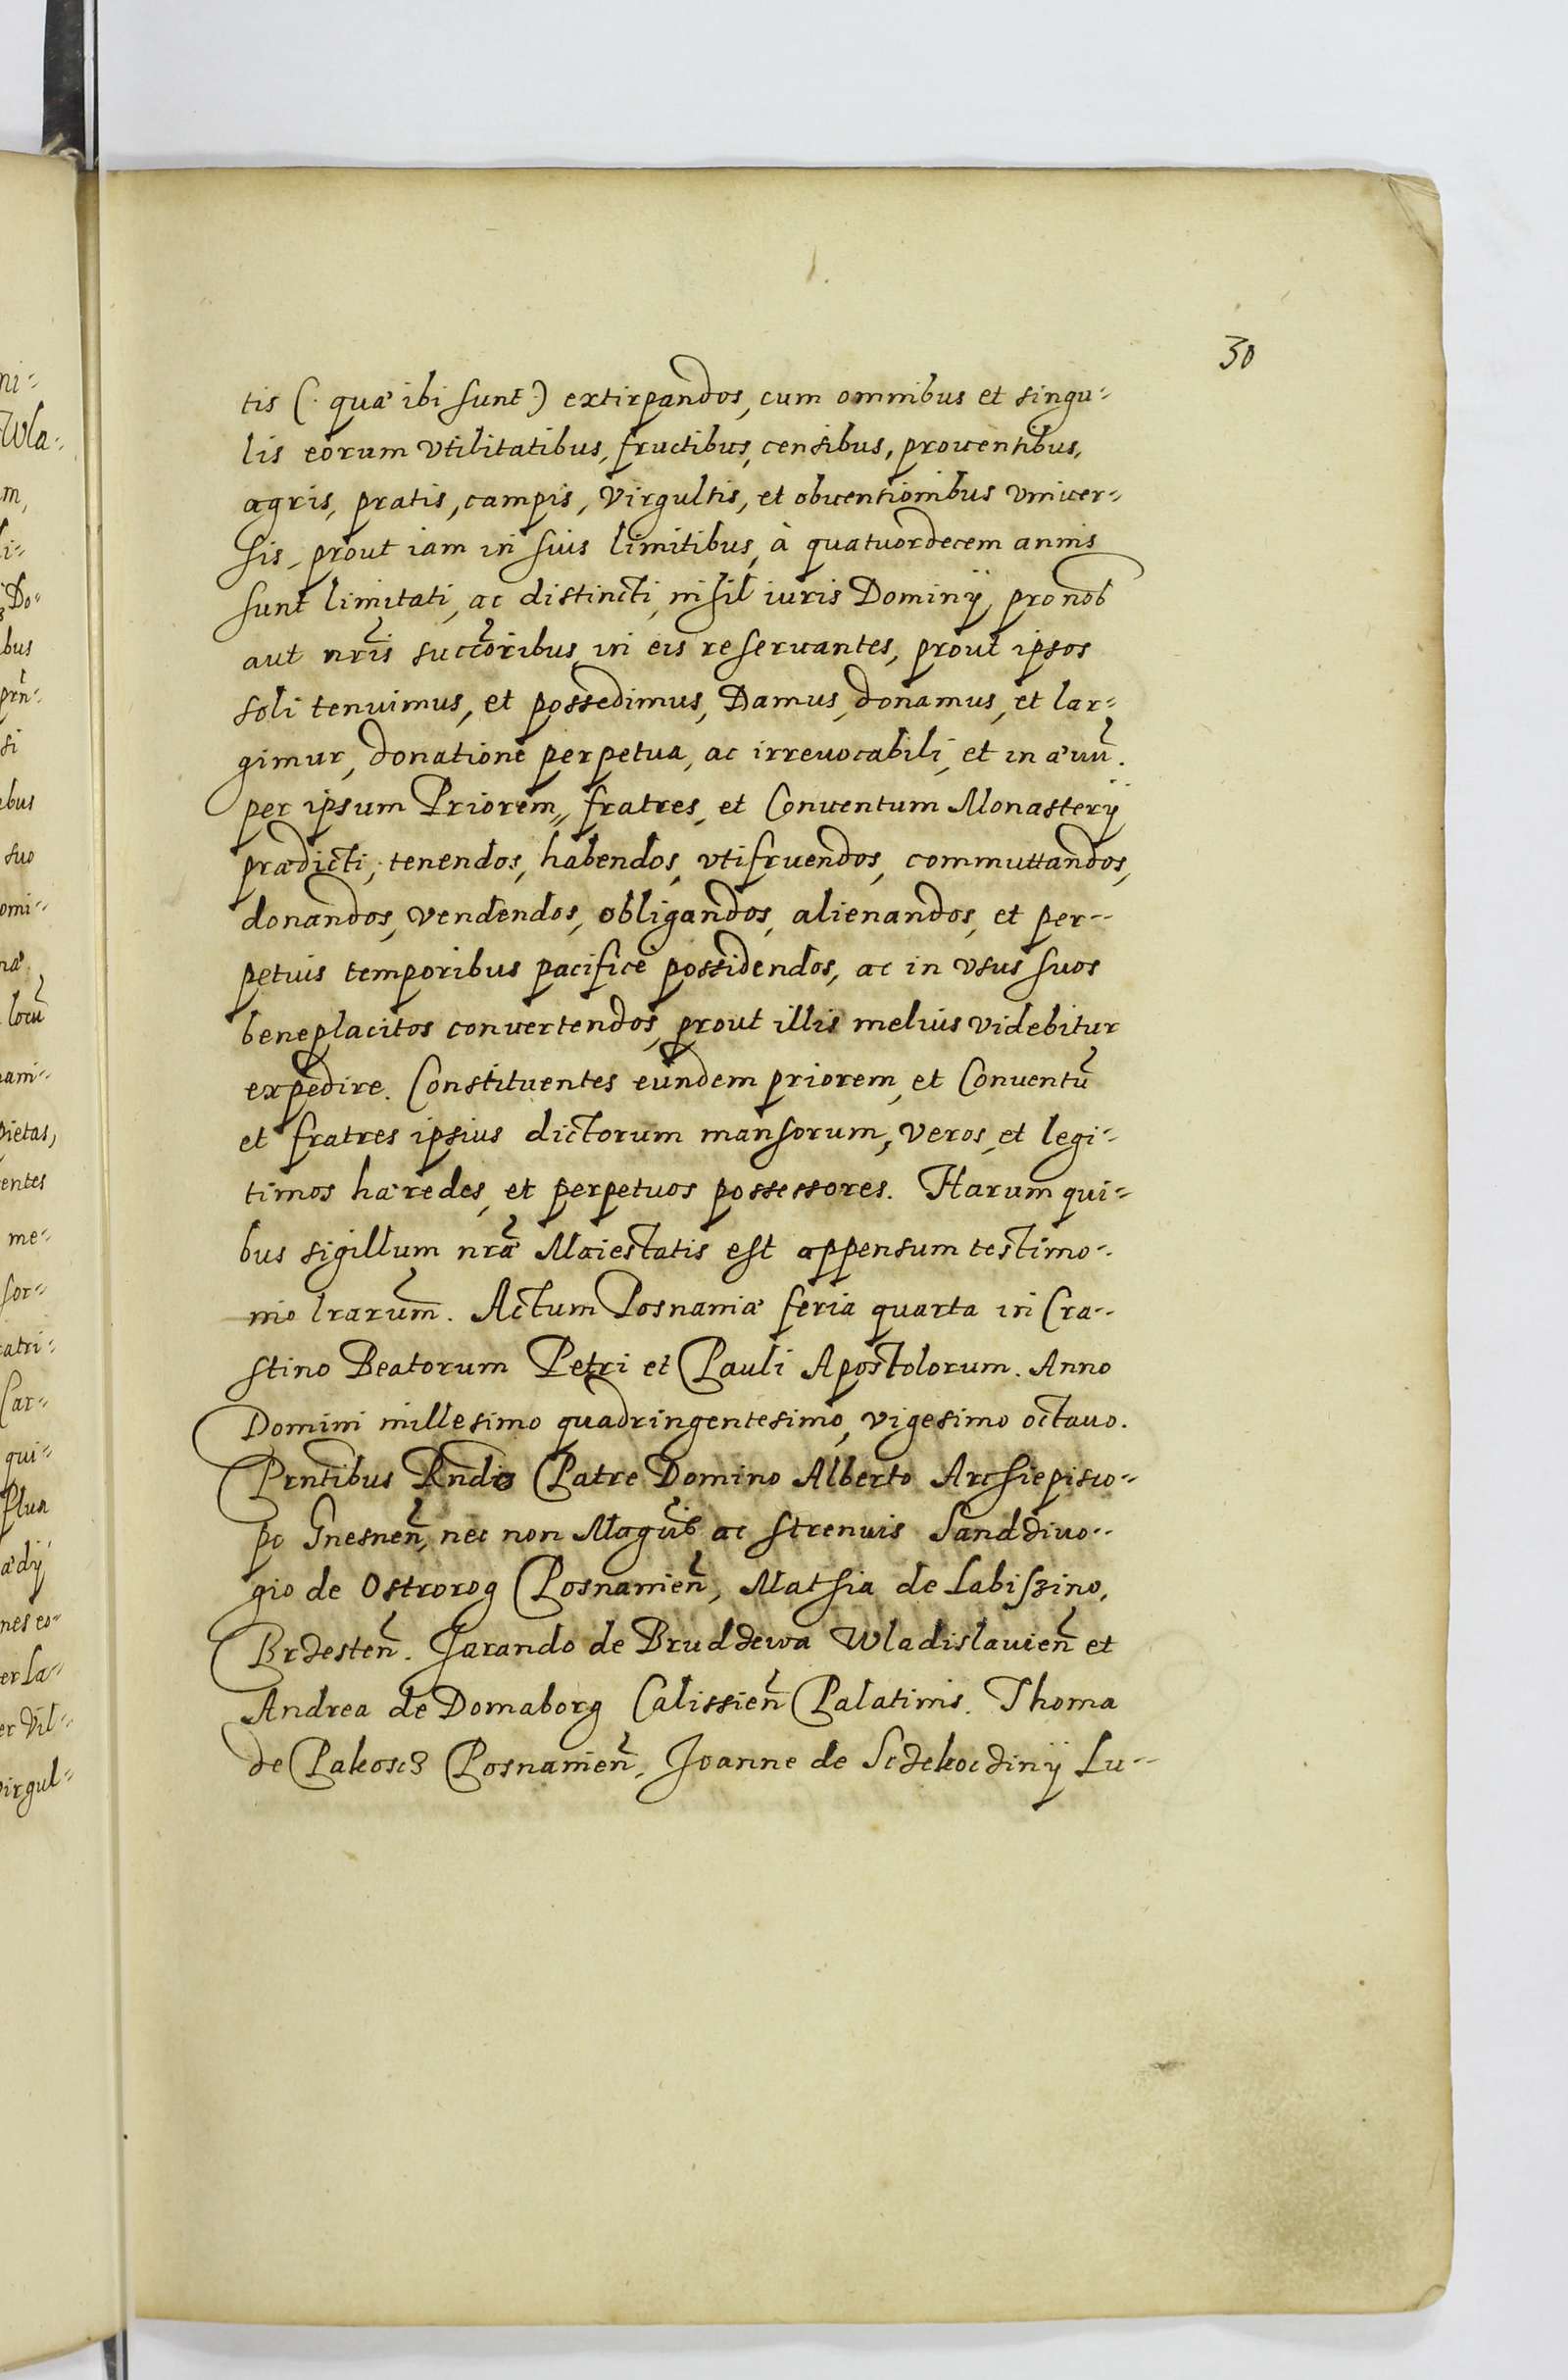 30
tis (. quæ ibi sunt .) extirpandos, cum omnibus et singu=
lis eorum vtilitatibus, fructibus, censibus, prouentibus,
agris, pratis, campis, virgultis, et obuentionibus vniuer=
sis, prout iam in suis limitibus, à quatuordecem annis
sunt limitati, ac distincti, nihil iuris Dominij pro nob
aut nr̃is succ̃oribus in eis reseruantes, prout ipsos
soli tenuimus, et possedimus, Damus, donamus, et lar=
gimur, donatione perpetua, ac irreuocabili, et in æuũ.
per ipsum Priorem, fratres, et Conuentum Monasterij
prædicti, tenendos, habendos, vtifruendos, commuttandos,
donandos, vendendos, obligandos, alienandos, et per=
petuis temporibus pacifice possidendos, ac in vsus suos
beneplacitos conuertendos, prout illis melius videbitur
expedire. Constituentes eundem priorem, et Conuentũ
et fratres ipsius dictorum mansorum, veros, et legi=
timos hæredes, et perpetuos possessores. Harum qui=
bus sigillum nrã Maiestatis est appensum testimo=
nio lrarum̃. Actum Posnaniæ feria quarta in Cra=
stino Beatorum Petri et Pauli Apostolorum. Anno
Domini millesimo quadringentesimo, vigesimo octauo.
Prntibus Rndo Patre Domino Alberto Archiepisco=
po Gnesneñ, nec non Magcis ac strenuis Sanddiuo=
gio de Ostrorog Posnanieñ, Mathia de Labiszino,
Brdesteñ. Jarando de Bruddewa Wladislauieñ et
Andrea de Domaborg Calissieñ Palatinis. Thoma
de Pakosch Posnanieñ, Joanne de Scdekocdinij Lu=
ni=
Wla=
m,
li=
Do=
bus
prñ=
si
bus
suo
omi=
næ
locũ
nam=
pietas,
entes
me=
sor=
catri=
Car=
qui=
nes eo=
er La=
er Vil=
virgul=